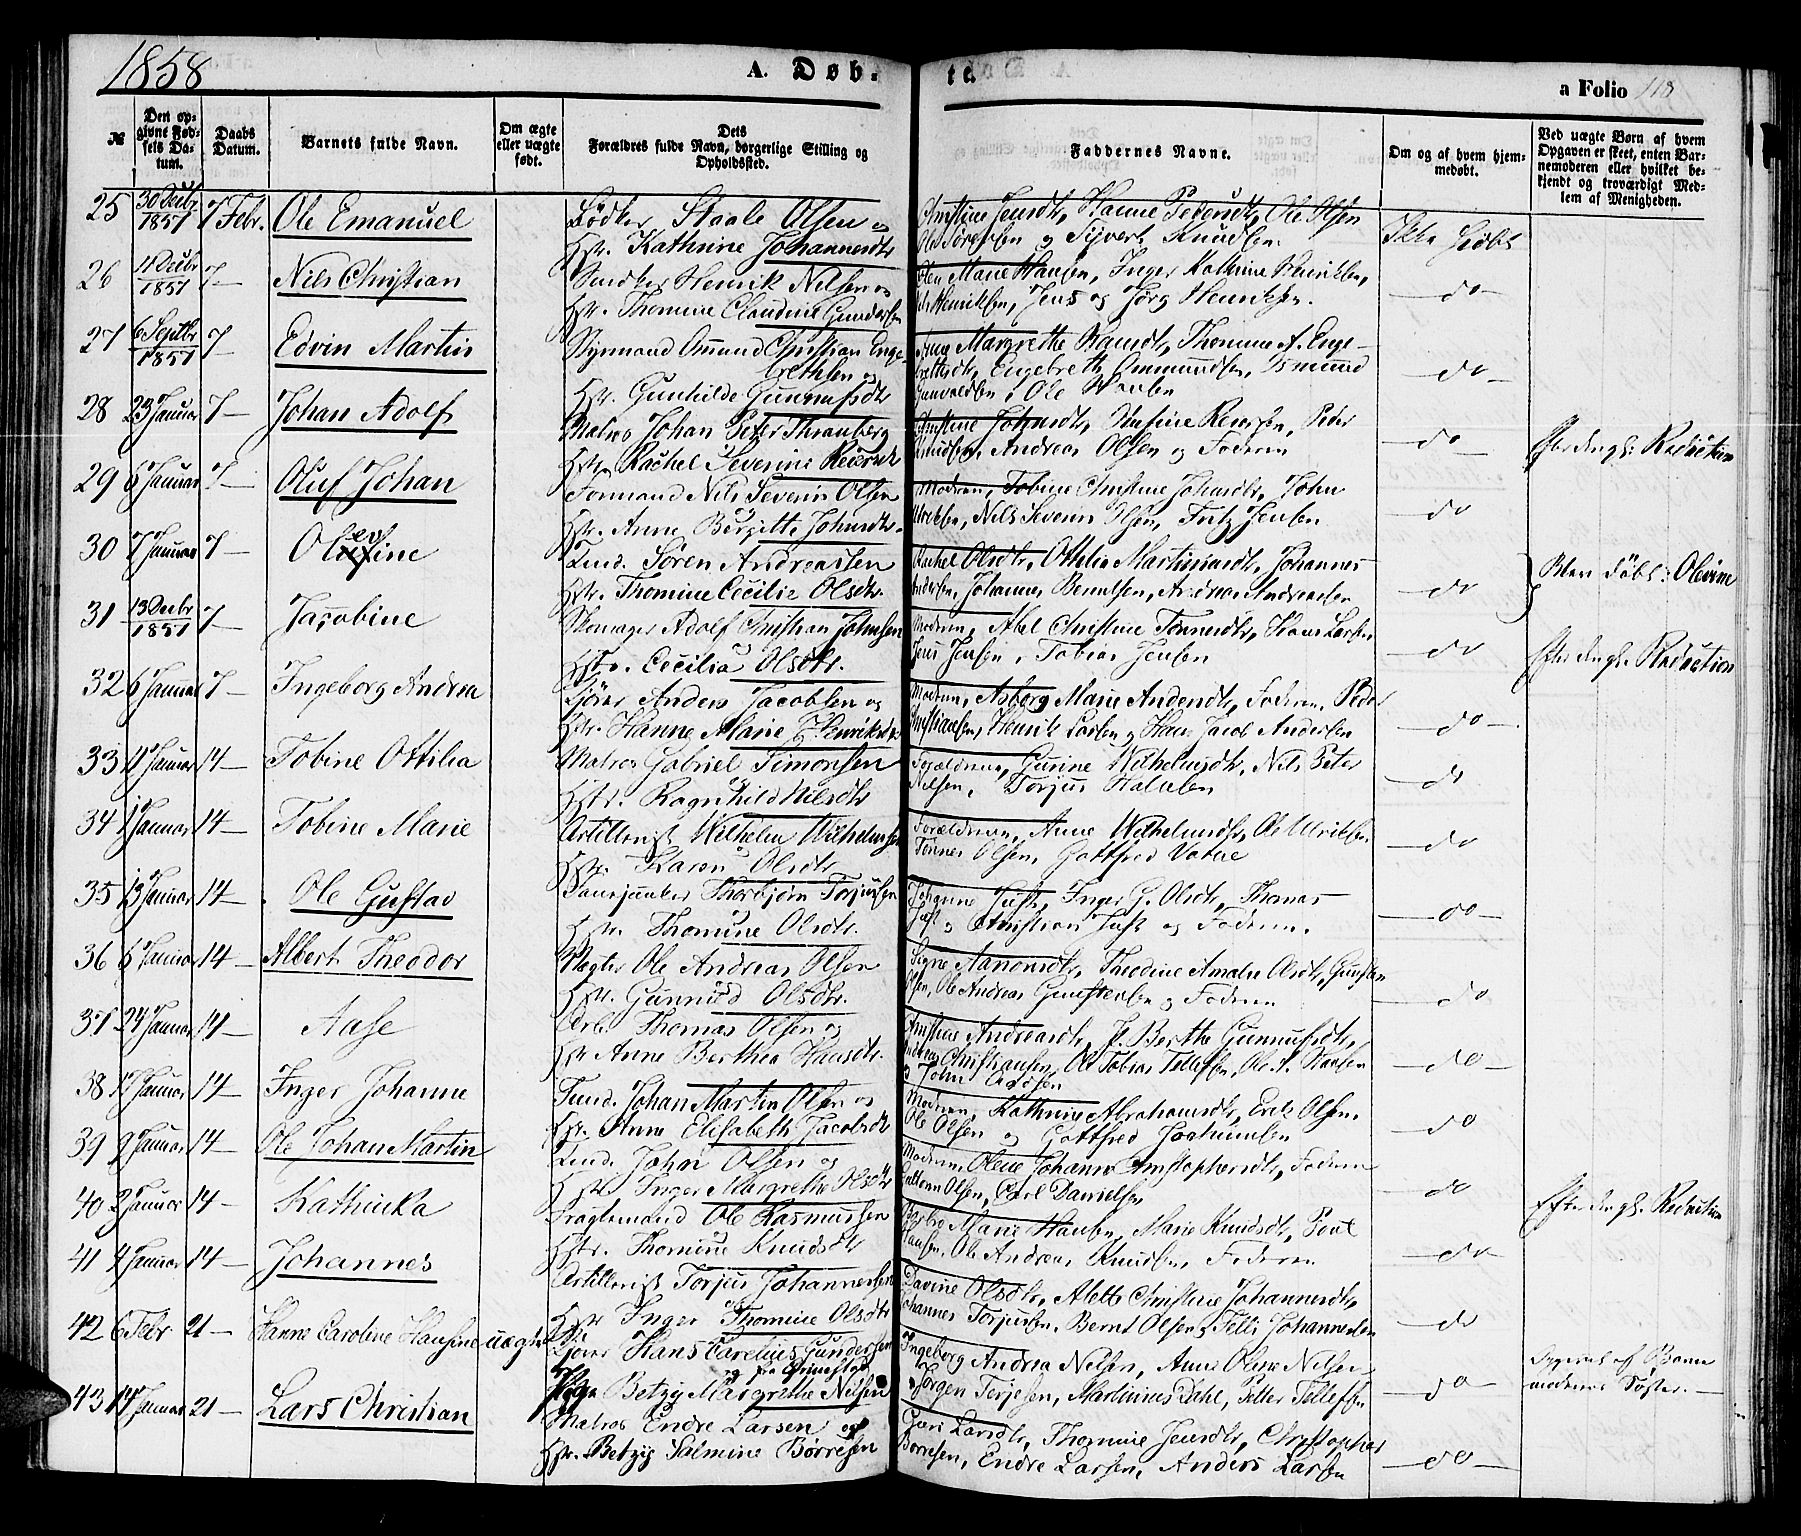 1858
A. Døb-
te.
a Folio 118
№
Den op-
givne Fød-
sels Da-
tum.
Daabs
Datum.
Barnets fulde Navn.
Om ægte
eller uægte
født.
Dets
Forældres fulde Navn, borgerlige Stilling og
Opholdssted.
Faddernes Navne.
Om og af hvem hjem-
medøbt.
Ved uægte Børn af hvem
Opgaven er skeet, enten Bar-
nemoderen eller hvilket be-
kjendt og troværdigt Med-
lem af Menigheden.
25 30 Decbr 1857 7 Febr. Ole Emanuel
Bødker Staale Olsen og
Hstr. Kathrine Johannesdtr
Christine Jensdtr, Hanne Pedersdtr, Ole Olsen
Ole Sørensen og Syvert Knudsen.
Ikke hjøbt
26 11 Decbr 1857 7 — Nils Christian
Snedker Henrik Nilsen og
Hstr. Thomine Claudine Gundersen
Marie Hansen, Inger Kathrine Henriksen,
Henriksen, Jens og Jørg Henriksen.
do
27 6 Septbr 1857 7 — Edvin Martin
Christian Enge-
brethsen og
Hstr. Gunhilde Gunnufsdtr
Margrethe Berndtr, Thomine A. Enge-
brethsdtr, Engebreth Ommundsen, Osmund
Gunvaldsen, Ole Hansen
do
28 23 Januar 7 — Johan Adolf
Matros Johan Peter Thranberg
Hstr. Rachel Severine Reiersdt
Christine Johnsdtr, Reiersen, Peder
Knudsen, Andreas Olsen og Faderen
do
Efter Angl: Redaction
29 6 Januar 7 — Oluf Johan
Formand Nils Severin Olsen
Hstr. Anne Bergitte Johnsdtr.
Modren, Tobine Christine Johnsdtr, John
Ulriksen, Nils Severin Olsen, Fritz Jensen
do
30 7 Januar 7 — Olevine
Lind. Søren Andreassen
Hstr. Thomine Cecilie Olsdtr.
Rachel Olsdtr, Othelia Martinusdtr, Johannes
Andersen, Johannes Berntsen, Andreas Andreassen
do
Blev døbt: Olevine
31 13 Decbr 1857 7 — Jacobine
Skomager Adolf Christian Johnsen
Hstr. Cecilia Olsdtr.
Modren, Abel Christine Tønnesdtr, Hans Larsen
Jens Jensen, Tobias Jensen
do
Efter Angl. Redaction
32 6 Januar 7 — Ingeborg Andrea
Gjører Anders Jacobsen og
Hstr. Hanne Marie Henriksdtr
Modren, Asborg Marie Andersdtr, Fadren, Peder
Christiansen, Henrik Larsen og Hans Jacob Andersen
do
33 11 Januar 14 — Tobine Ottilia
Matros Gabriel Simonsen
Hstr. Ragnhild Nilsdtr
Forældrene, Gurine Wilhelmsdtr, Nils Peter
Nilsen, Torjus Halvorsen
do
34 1 Januar 14 — Tobine Marie
Artillerist Wilhelm Wilhelmsen
Hstr. Karen Olsdtr
Forældrene, Anne Wilhelmsdtr, Ole Ulriksen
Tønnes Olsen, Gottfred Vatne
do
35 13 Januar 14 — Ole Gustav
Thorbjørn Torjussen
Hstr. Thomine Olsdtr.
Johanne Just, Inger G. Olsdtr, Thomas
Just og Christian Just og Faderen.
do
36 6 Januar 14 — Albert Theodor
Vægter Ole Andreas Olsen
Hstr. Gunnild Olsdtr.
Signe Aanonsdtr, Theodine Amalie Olsdtr, Gunsten
Olsen, Ole Andreas Gunstensen og Faderen
do
37 24 Januar 14 — Aase
Arb. Thomas Olsen og
Hstr Anne Berthea Hansdtr.
Christine Andreasdtr, J. Berthe Gunnufsdtr,
Andreas Christiansen, Ole Tobias Tellefsen, Ole A. Hansen
og John Olsen
do
38 17 Januar 14 — Inger Johanne
Lind. Johan Martin Olsen og
Hstr Anne Elisabeth Jacobsdtr
Modren, Kathrine Abrahamsdtr, Erik Olsen,
Ole Olsen og Gottfred Joakimsen
do
39 9 Januar 14 — Ole Johan Martin
Lind. John Olsen og
Hstr Inger Margrethe Olsdtr
Modren, Olene Johanne Christophersdtr, Fadren
Olsen, Carl Danielsen
do
40 2 Januar 14 — Kathinka
Fragtemand Ole Rasmussen
Hstr. Thomine Knudsdtr
Barbro Marie Hansen, Marie Knudsdtr, Poul
Hansen, Ole Andreas Knudsen, Faderen
do
Efter Angl. Redaction
41 4 Januar 14 — Johannes
Artillerist Torjus Johannessen
Hstr Inger Thomine Olsdtr
Davine Olsdtr, Alette Christine Johannesdtr,
Johannes Torjussen, Bernt Olsen, Tellef Johannessen
do
42 6 Febr 21 — Hanne Caroline Hansine uægte
Gjører Hans Carelius Gundersen
og fra Grimstad
Pige Betzy Margrethe Nilsen
Ingeborg Andrea Nilsen, Anne Olene Nilsen
Jørgen Terjesen, Martinnes Dahl, Petter Tellefsen
do
Opgivet af Barne
moderens Søster.
43 14 Januar 21 — Lars Christian
Matros Endre Larsen og
Hstr. Betzy Salmine Børresen
Guri Larsdtr, Thomine Jensdtr, Christopher
Børresen, Endre Larsen, Anders Larsen
do